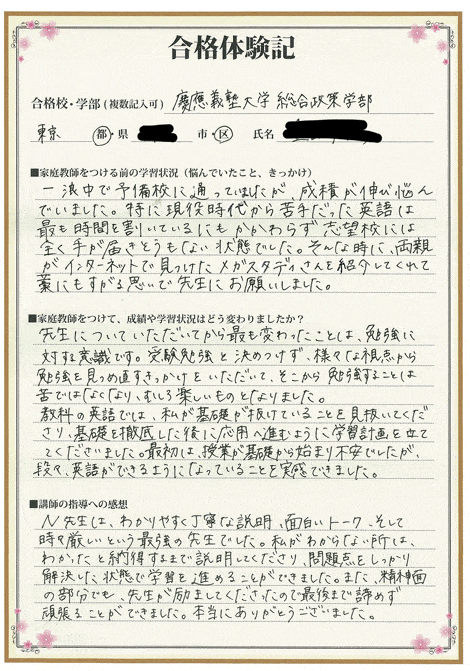 合格体験記
合格校・学部(複数記入可) 慶應義塾大学 総合政策学部
東京 都・県 市・区 氏名
■家庭教師をつける前の学習状況（悩んでいたこと、きっかけ）
一浪中で予備校に通っていましたが、成績が伸び悩ん
でいました。特に現役時代から苦手だった英語は
最も時間を割いているにもかかわらず志望校には
全く手が届きそうもない状態でした。そんな時に、両親
がインターネットで見つけたメガスタディさんを紹介してくれて
藁にもすがる思いで先生にお願いしました。
■家庭教師をつけて、成績や学習状況はどう変わりましたか？
先生についていただいてから最も変わったことは、勉強に
対する意識です。受験勉強と決めつけず、様々な視点から
勉強を見つめ直すきっかけをいただいて、そこから勉強することは
苦ではなくなり、むしろ楽しいものとなりました。
教科の英語では、私が基礎が抜けていることを見抜いてくだ
さり、基礎を徹底した後に応用へ進むように学習計画を立て
てくださいました。最初は、授業が基礎から始まり不安でしたが、
段々、英語ができるようになっていることを実感できました。
■講師の指導への感想
N先生は、わかりやすく丁寧な説明、面白いトーク、そして
時々厳しいという最強の先生でした。私がわからない所は、
わかったと納得するまで説明してくださり、問題点をしっかり
解決した状態で学習を進めることができました。また、精神面
の部分でも、先生が励ましてくださったので最後まで諦めず
頑張ることができました。本当にありがとうございました。